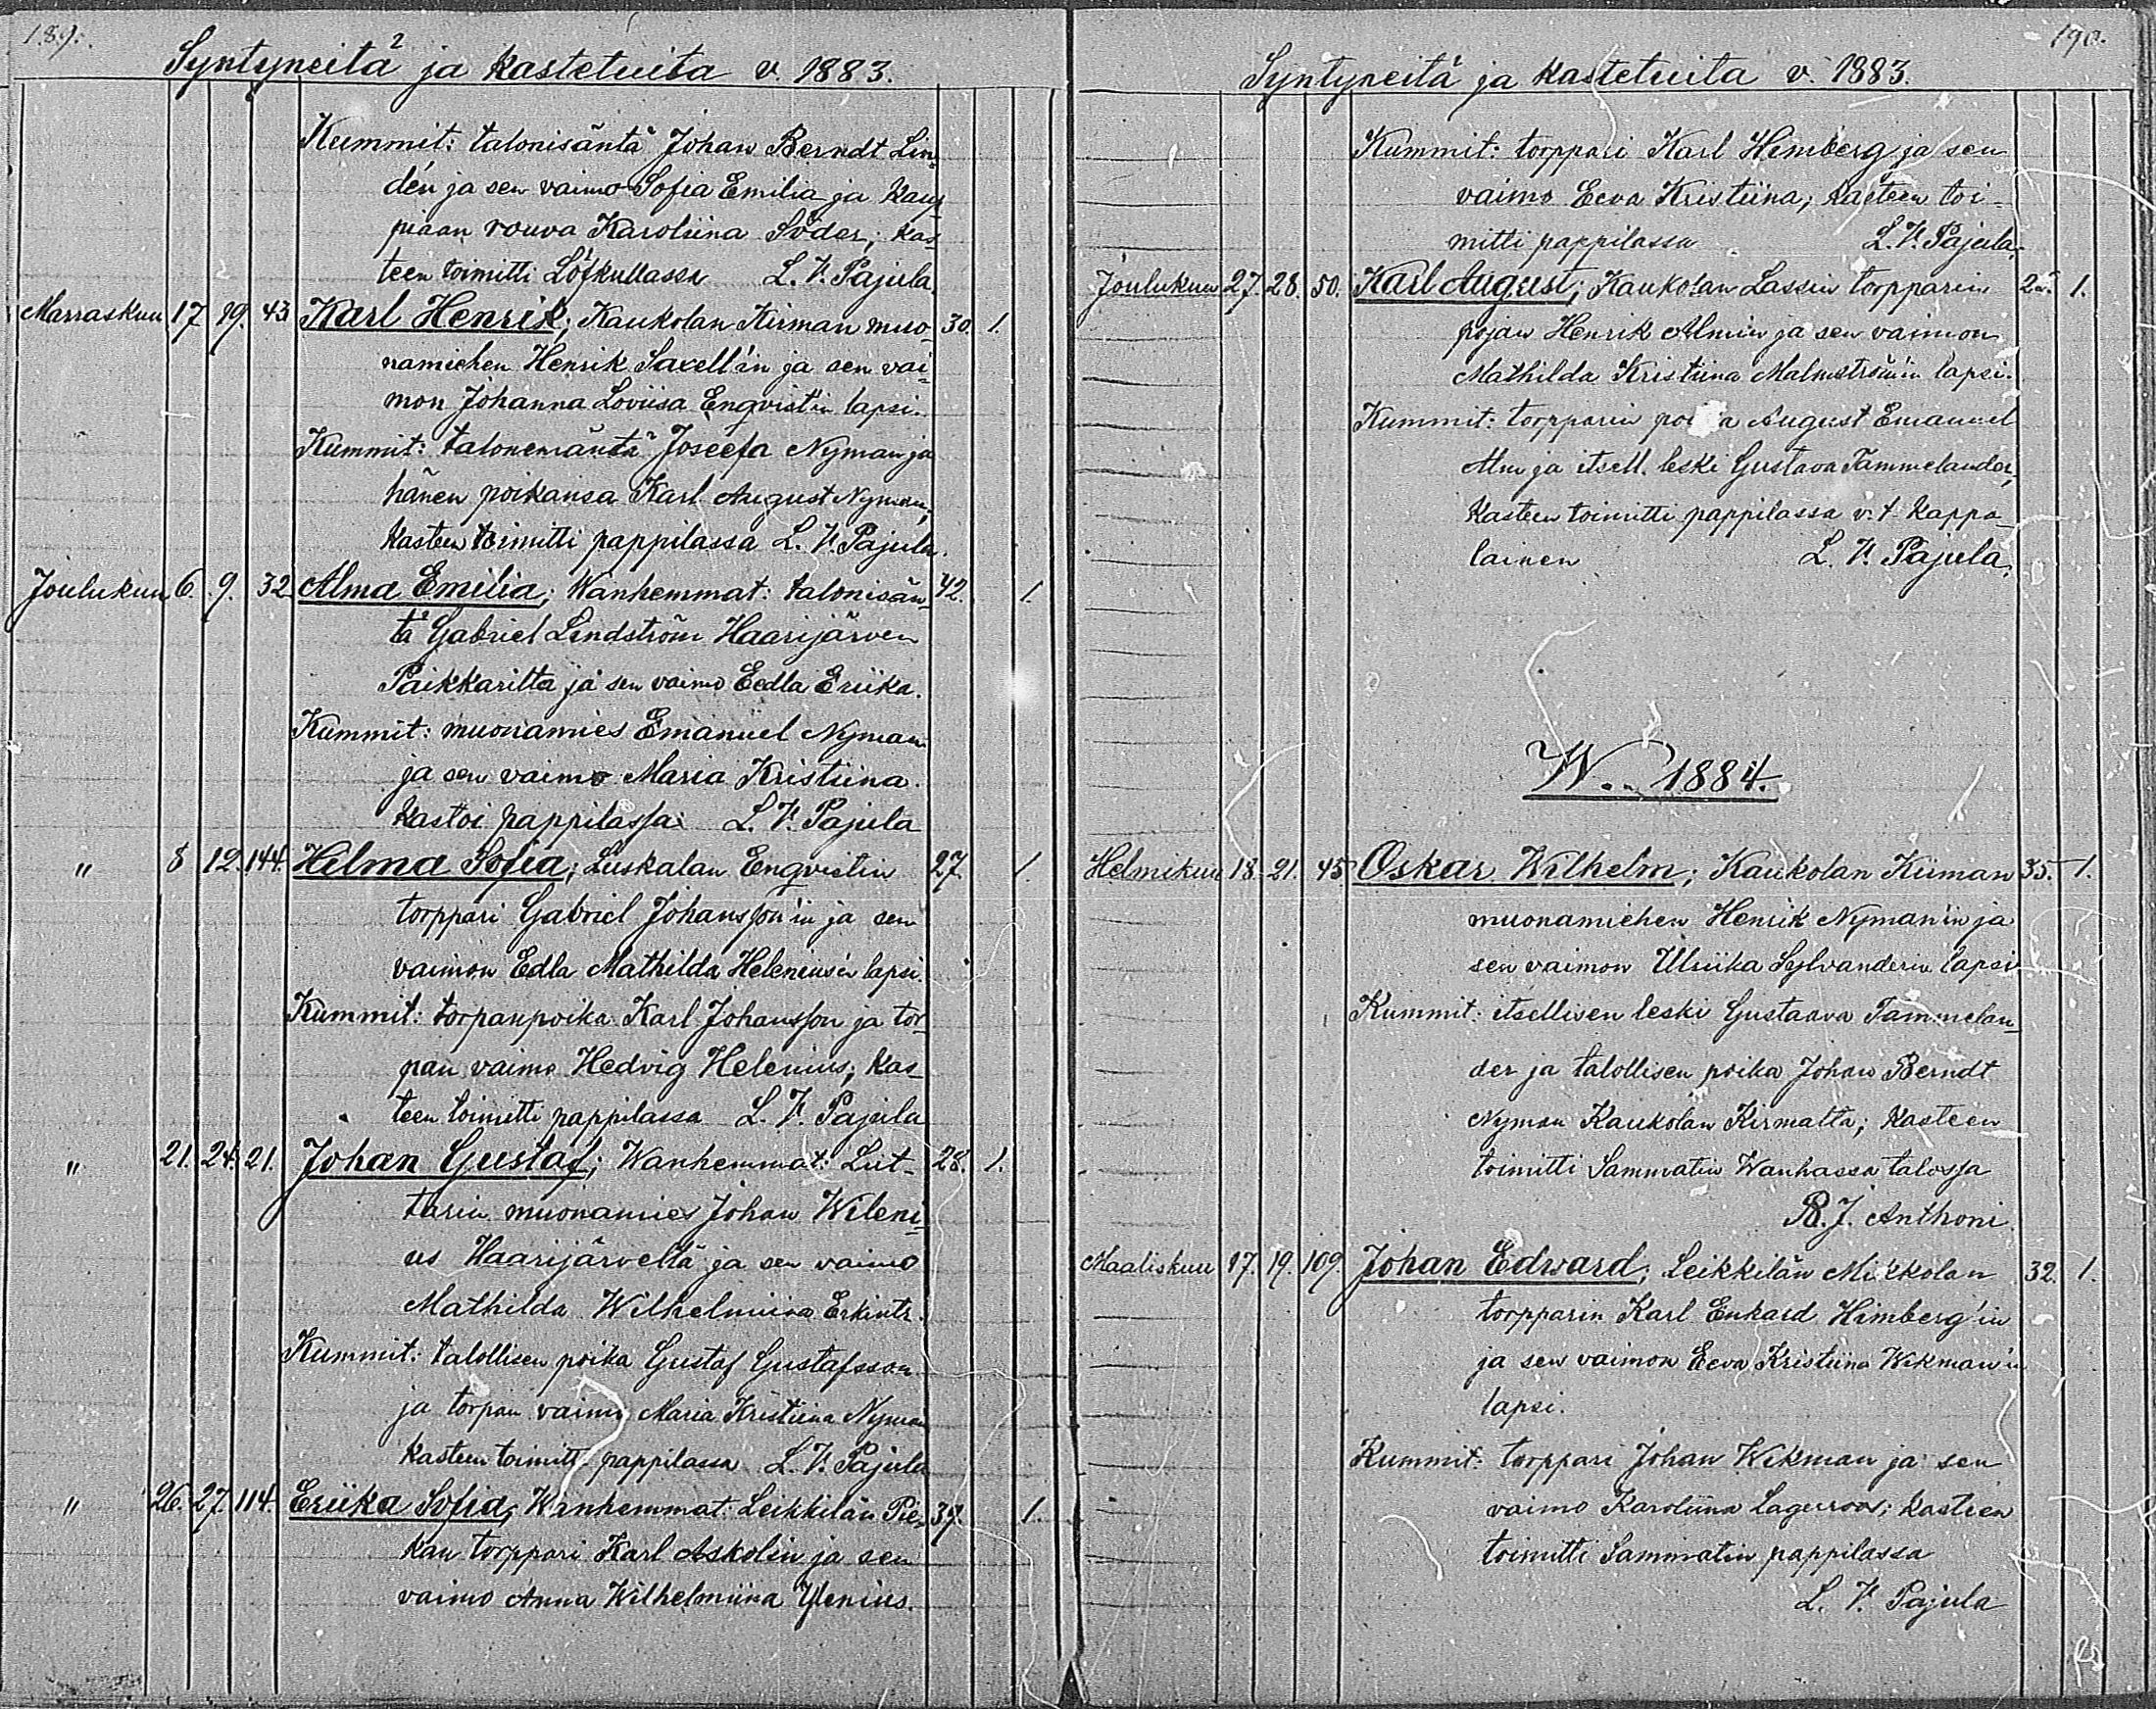 189.
Syntyneitä ja kastetuita v. 1883.
Kummit: talonisäntä Johan Berndt Lin-
dén ja sen vaimo Sofia Emilia ja kaup-
piaan rouva Karoliina Söder; kas-
teen toimitti Löfkullassa L. V. Pajula.
Marraskuu 17. 19. 43 Karl Henrik; Kaukolan Kirman muo- 30. 1.
namiehen Henrik Saxell'in ja sen vai-
mon Johanna Loviisa Engvist'in lapsi.
Kummit: talonemäntä Joseefa Nyman ja
hänen poikansa Karl August Nyman;
kasteen toimitti pappilassa L. V. Pajula.
Joulukuu 6. 9. 32 Alma Emilia; Wanhemmat: talonisän- 42. 1.
tä Gabriel Lindström Haarijärven
Paikkarilta ja sen vaimo Eedla Eriika.
Kummit: muonamies Emanuel Nyman
ja sen vaimo Maria Kristiina.
kastoi pappilassa: L. V. Pajula
" 8 12. 144. Hilma Sofia; Luskalan Engvistin 27. 1.
torppari Gabriel Johansson'in ja sen
vaimon Edla Mathilda Helenius'in lapsi.
Kummit: torpanpoika Karl Johansson ja tor-
pan vaimo Hedvig Helenius; kas-
teen toimitti pappilassa L. V. Pajula
" 21. 24. 21. Johan Gustaf; Wanhemmat: Lut- 28. 1.
tarin muonamies Johan Wileni-
us Haarijärveltä ja sen vaimo
Mathilda Wilhelmiina Erkintr.
Kummit: talollisen poika Gustaf Gustafsson
ja torpan vaimo Maria Kristiina Nyman
kasteen toimitti pappilassa L. V. Pajula
" 26. 27. 114. Eriika Sofia; Wanhemmat: Leikkilän Pie- 37. 1.
kan torppari Karl Askolin ja sen
vaimo Anna Wilhelmiina Ylenius.
190.
Syntyneitä ja kastetuita v. 1883.
Kummit: torppari Karl Himberg ja sen
vaimo Eeva Kristiina; kasteen toi-
mitti pappilassa L. V. Pajula.
Joulukuu 27. 28. 50. Karl August; Kaukolan Lassin torpparin 1.
pojan Henrik Almin ja sen vaimon
Mathilda Kristiina Malmström'in lapsi.
Kummit: torpparin poika August Emanuel
Alm ja itsell. leski Gustava Tammelander;
kasteen toimitti pappilassa v. t. kappa-
lainen L. V. Pajula.
W. 1884.
Helmikuu 18. 21. 45 Oskar Wilhelm; Kaukolan Kiiman 35. 1.
muonamiehen Henrik Nyman'in ja
sen vaimon Ulriika Sylvanderin lapsi
Kummit: itsellisen leski Gustaava Tammelan-
der ja talollisen poika Johan Berndt
Nyman Kaukolan Kirmalta; kasteen
toimitti Sammatin Wanhassa talossa
R. J. Anthoni
Maaliskuu 17. 19. 109. Johan Edward; Leikkilän Mikkolan 32. 1.
torpparin Karl Enkard Himberg'in
ja sen vaimon Eeva Kristiina Wikman'in
lapsi.
Kummit: torppari Johan Wikman ja sen
vaimo Karoliina Lagerroos; kasteen
toimitti Sammatin pappilassa
L. V. Pajula